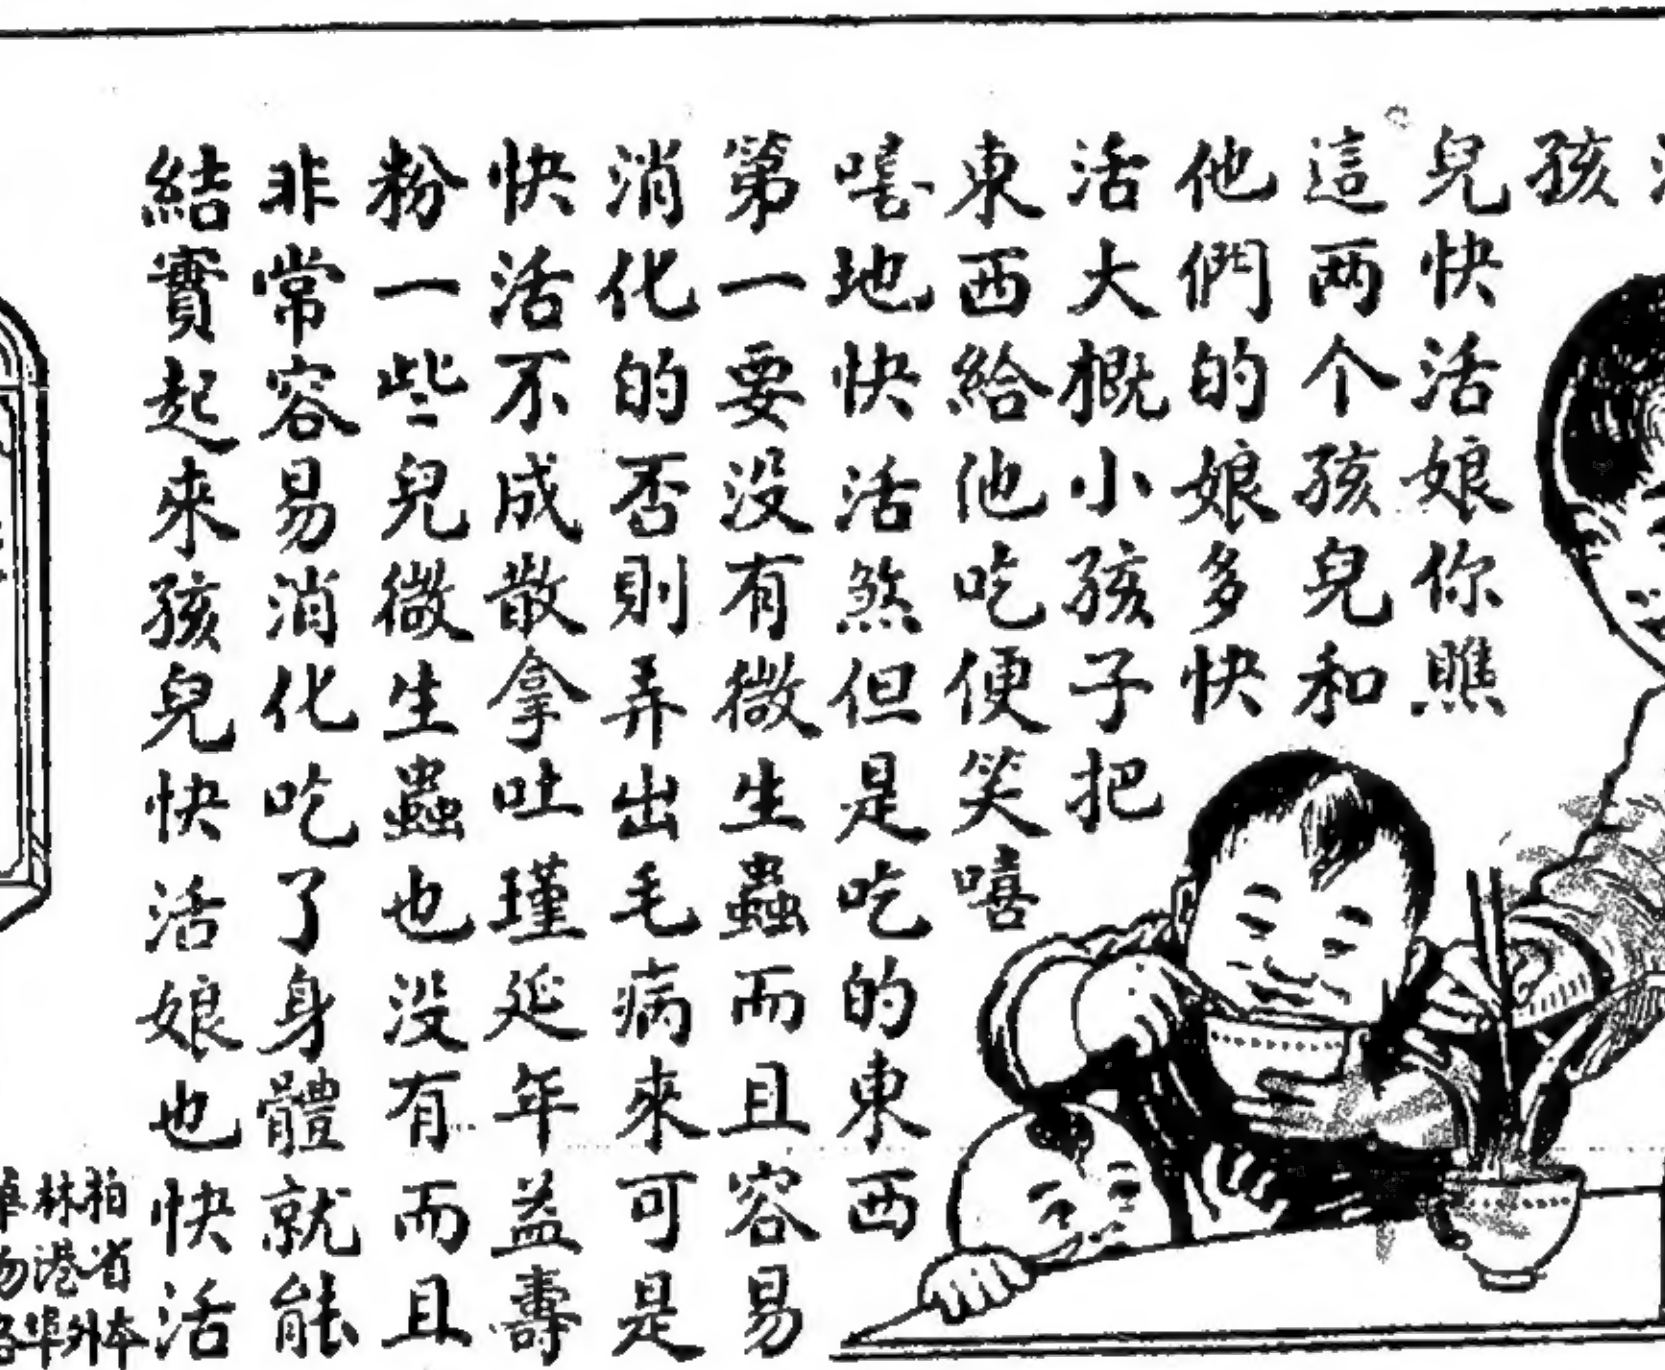 孩
兒快活娘你瞧
這两个孩兒和
他們的娘多快
活大概小孩子把
東西給他吃便笑嘻
嘻地快活煞但是吃的東西
第一要没有微生蟲而且容易
消化的否則弄出毛病來可是
快活不成散拿吐瑾延年益壽
粉一些兒微生蟲也没有而且
非常容易消化吃了身體就能
結實起來孩兒快活娘也快活
柏省本
林港外
埠